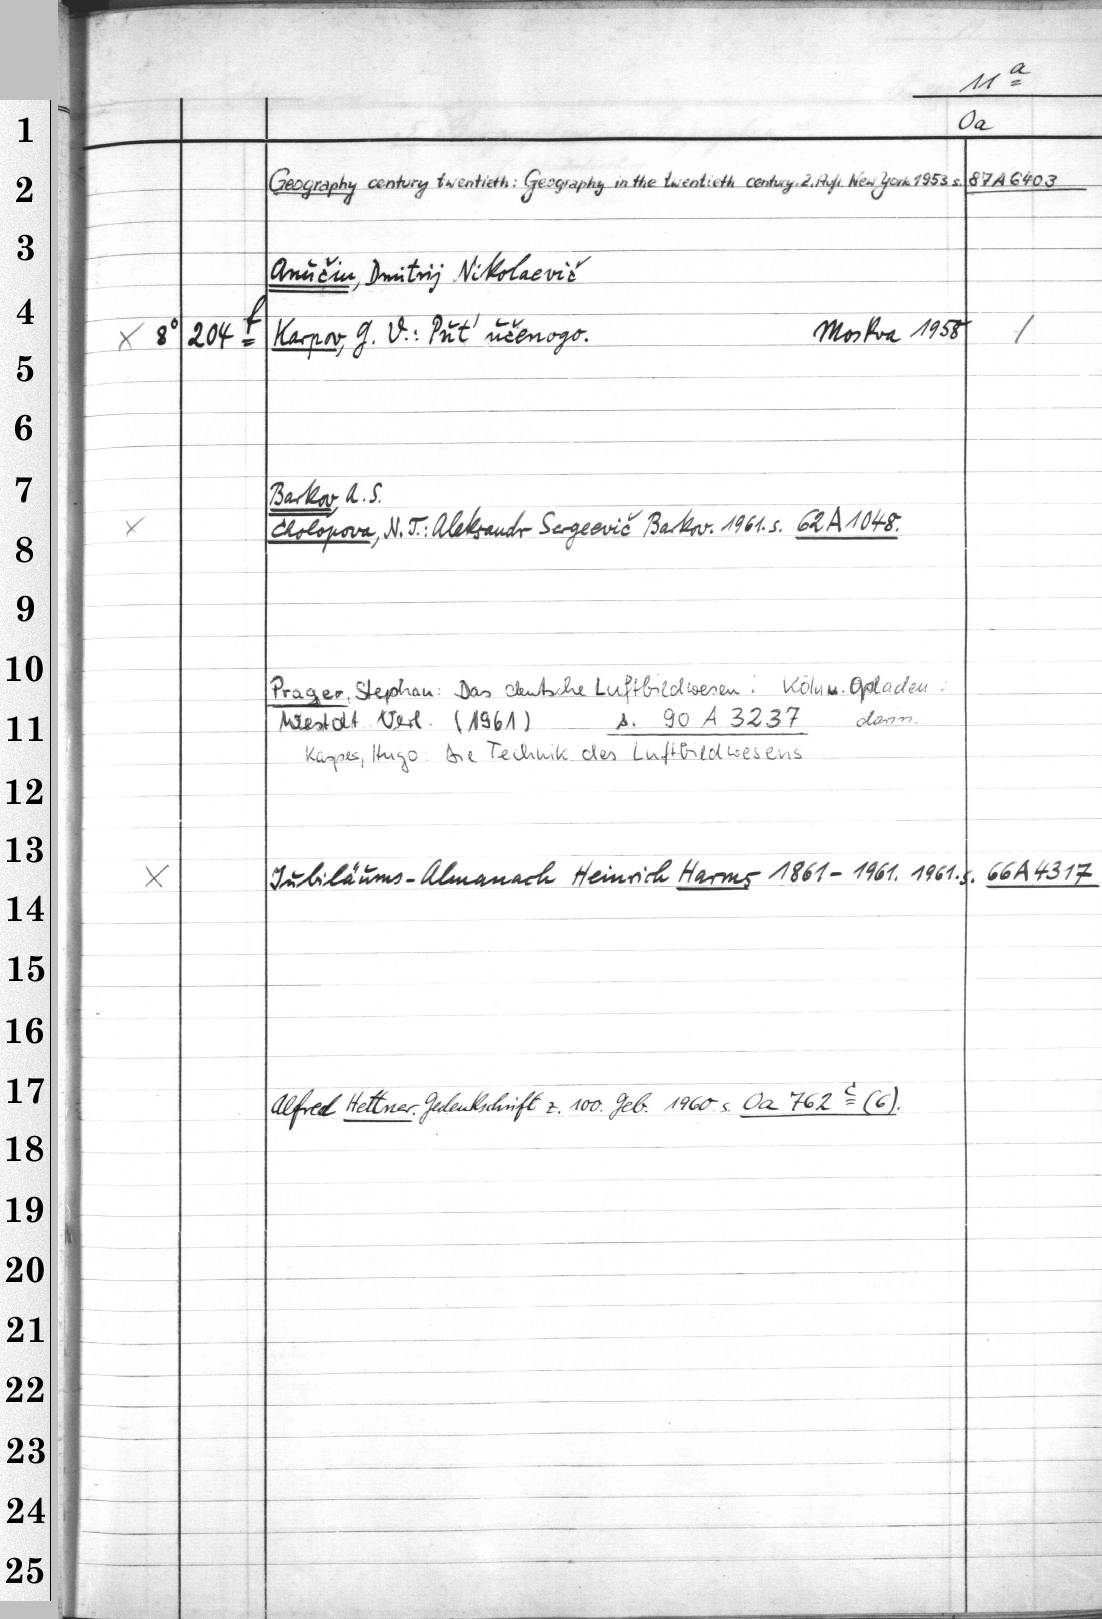 11 a
Oa
1
2
Geography century twentieth: Geography in the twentieth century. 2. Aufl. New York 1953 s. 87 A 6403
3
Anučin, Dmitrij Nikolaevič
4
× 8° 204 f Karpov, G. V.: Put' učenogo. Moskva 1958 /
5
6
7
Barkov, A. S.
× Cholopova, N. T.: Aleksandr Sergeevič Barkov. 1961. s. 62 A 1048.
8
9
10
Prager, Stephan: Das deutsche Luftbildwesen. Köln u. Opladen:
11
Westdt. Verl. (1961) s. 90 A 3237 darin.
Kasper, Hugo: Die Technik des Luftbildwesens
12
13
× Jubiläums-Almanach Heinrich Harms 1861-1961. 1961. s. 66 A 4317
14
15
16
17
Alfred Hettner. Gedenkschrift z. 100. Geb. 1960 s. Oa 762 c (6).
18
19
20
21
22
23
24
25